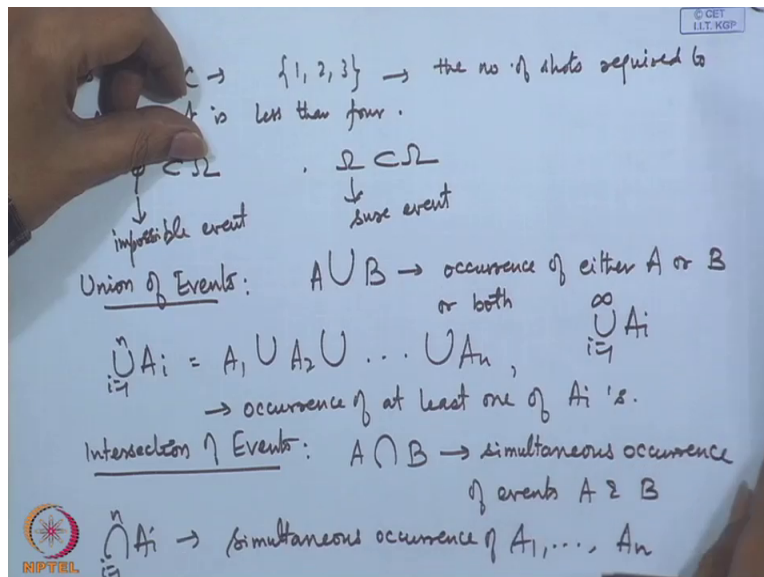 © CET
I.I.T. KGP
C → {1, 2, 3} → the no. of shots required to
is less than four.
ϕ ⊂ Ω . Ω ⊂ Ω
↓ ↓
impossible event sure event
Union of Events: A ∪ B → occurrence of either A or B
or both
n ⋃ i=1 Ai = A1 ∪ A2 ∪ ... ∪ An , ∞ ⋃ i=1 Ai
→ occurrence of at least one of Ai 's.
Intersection of Events: A ∩ B → simultaneous occurrence
of events A & B
n ⋂ i=1 Ai → simultaneous occurrence of A1, ..., An
NPTEL